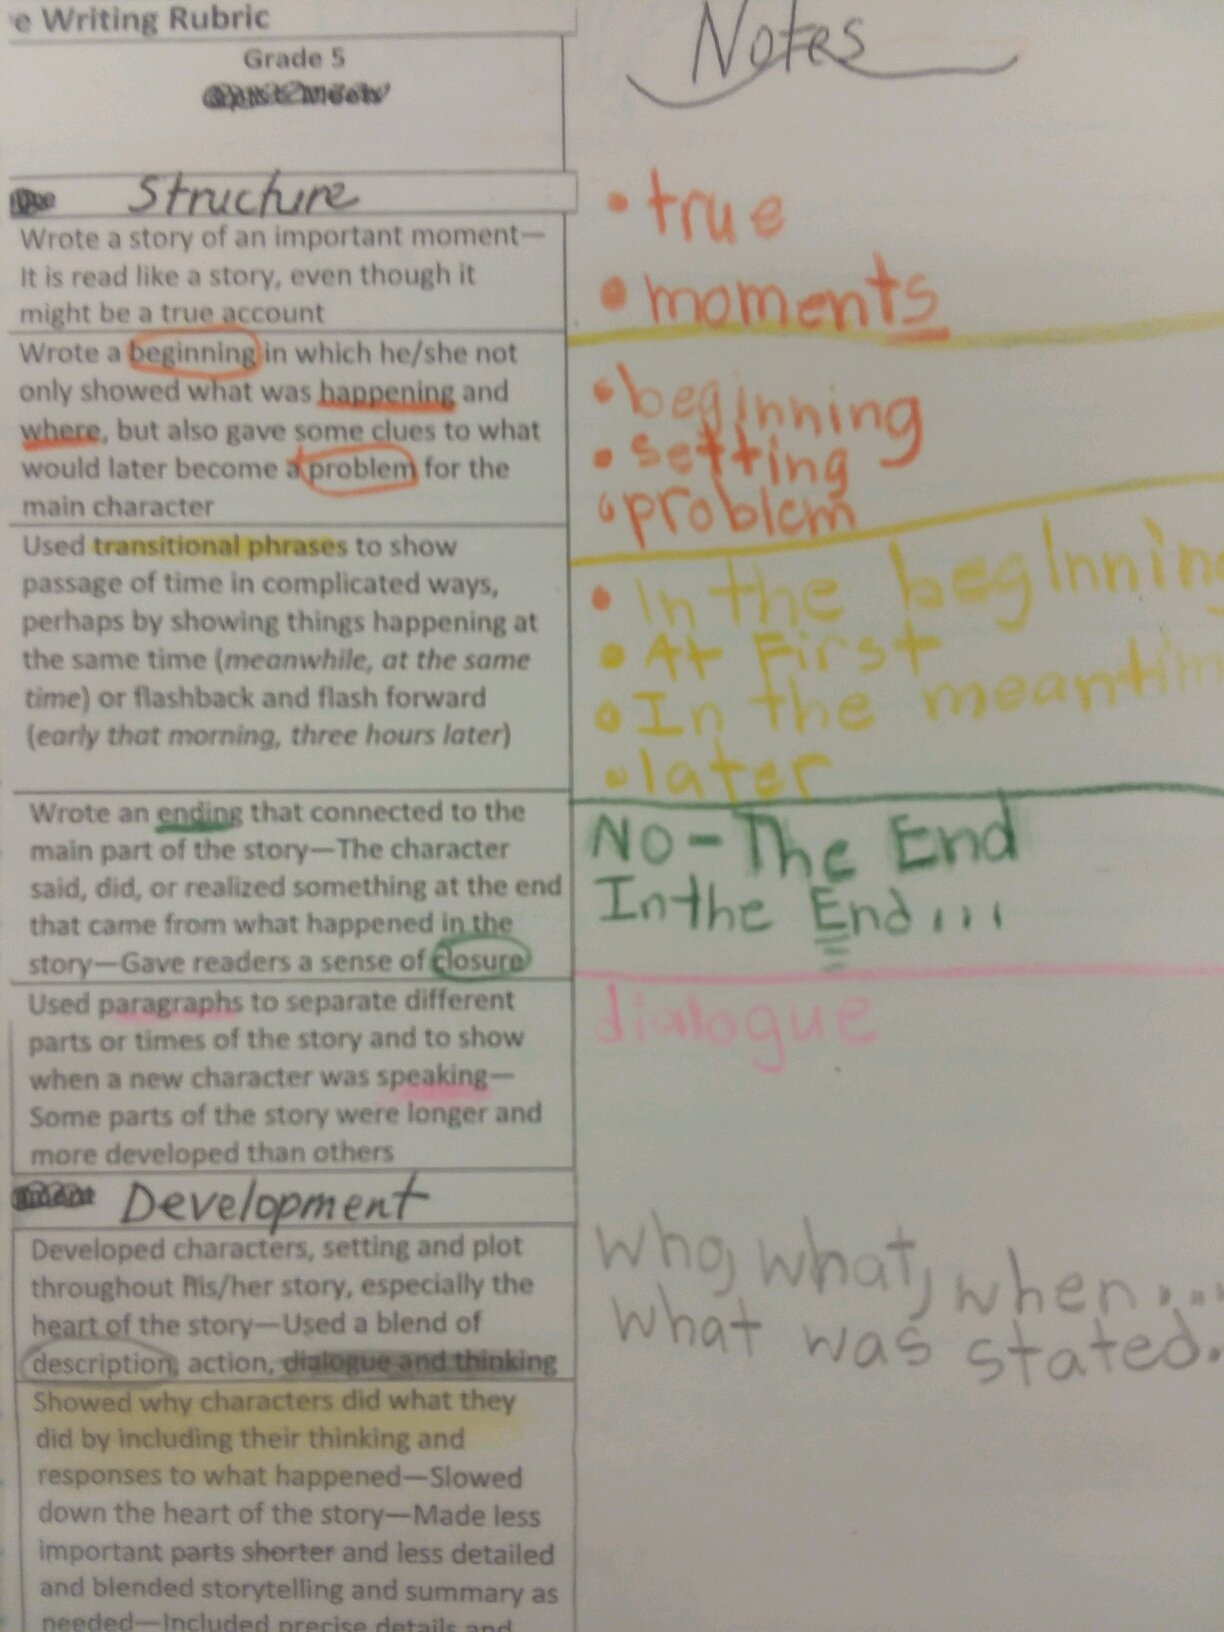 e Writing Rubric
Grade 5
Notes
Structure
Wrote a story of an important moment—
It is read like a story, even though it
might be a true account
• true
• moments
Wrote a beginning in which he/she not
only showed what was happening and
where, but also gave some clues to what
would later become a problem for the
main character
• beginning
• setting
• problem
Used transitional phrases to show
passage of time in complicated ways,
perhaps by showing things happening at
the same time (meanwhile, at the same
time) or flashback and flash forward
(early that morning, three hours later)
• In the beginning
• At First
• In the meantim
• later
Wrote an ending that connected to the
main part of the story—The character
said, did, or realized something at the end
that came from what happened in the
story—Gave readers a sense of closure
NO - The End
In the End...
Used paragraphs to separate different
parts or times of the story and to show
when a new character was speaking—
Some parts of the story were longer and
more developed than others
dialogue
Development
Developed characters, setting and plot
throughout his/her story, especially the
heart of the story—Used a blend of
description, action, dialogue and thinking
who, what, when...
what was stated.
Showed why characters did what they
did by including their thinking and
responses to what happened—Slowed
down the heart of the story—Made less
important parts shorter and less detailed
and blended storytelling and summary as
needed—Included precise details and